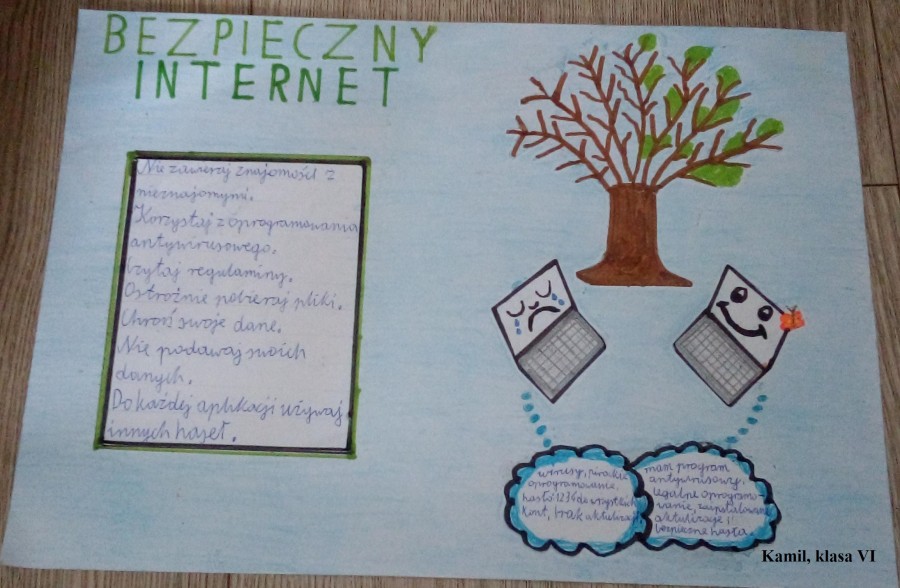 BEZPIECZNY
INTERNET
Nie zawieraj znajomości z
nieznajomymi.
Korzystaj z oprogramowania
antywirusowego.
Czytaj regulaminy.
Ostrożnie pobieraj pliki.
Chroń swoje dane.
Nie podawaj swoich
danych.
Do każdej aplikacji używaj
innych haseł.
wirusy, pirackie
oprogramowanie,
hasło 1234 do wszystkich
kont, brak aktualizacji
mam program
antywirusowy,
legalne oprogramo-
wanie, zainstalowane
aktualizacje i
bezpieczne hasła.
Kamil, klasa VI